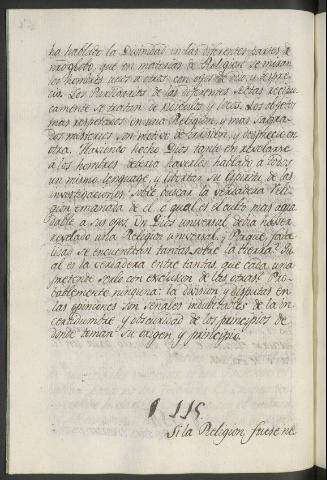 ha hablado la Divinidad en las diferentes partes de
nro globo, que en materias de Religion se miran
los hombres unos a otros con ojos de odio, u despre
cio. Los Partidarios de las diferentes Sectas recipro
camente se tratan de ridiculos y locos. Los objetos
mas respetados en una Religion, y mas sagra
dos misterios son motivo de irrision, y desprecio en
otra. Haviendo hecho Dios tanto en revelarse
a los hombres deberia haverles hablado a todos
un mismo lenguage, y libertar su Espiritu de las
investigaciones sobre buscar la verdadera Reli
gion emanada de el, o qual es el culto mas agra
dable a sus ojos. Un Dios universal devia haver
revelado una Religion universal. ¿Porque fata
lidad se encuentran tantas sobre la tierra? Qu
al es la verdadera entre tantas, que cada una
pretende serlo con exclusion de las otras? Pro
bablemente ninguna: la division, y disputas en
las opiniones son señales indubitables de la in
certidumbre y obscuridad de los principios de
donde toman su origen, y principio.
§ 115.
Si la Religion fuese ne